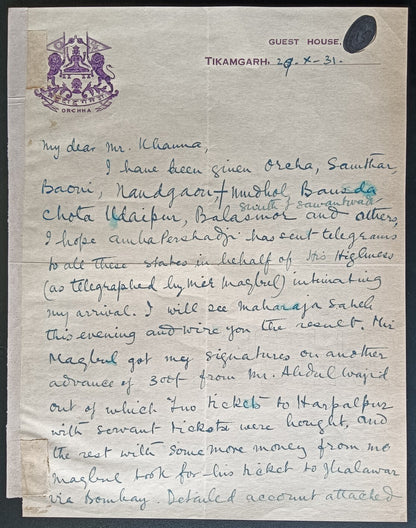 ORCHHA
GUEST HOUSE,
TIKAMGARH, 29-X-31.
My dear Mr. Khanna,
I have been given Orcha, Samthar,
Baoni, Nandgaon + Mudhol Bansda
Surath & Sawantwadi
Chota Udaipur, Balasinor and others,
I hope Amba Pershadji has sent telegrams
to all these states in behalf of His Highness
(as telegraphed by Mir Maqbul) intimating
my arrival. I will see Maharaja Saheb
this evening and wire you the result. Mir
Maqbul got my signatures on another
advance of 300/- from Mr. Abdul Wajid
out of which Two tickets to Harpalpur
with servant tickets were bought, and
the rest with some more money from me
Maqbul took for his ticket to Jhalawar
via Bombay. Detailed account attached